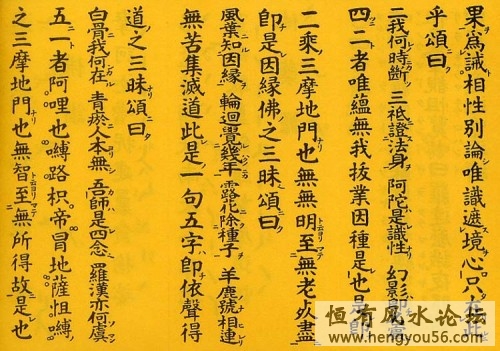 果爲誡相性別論唯識遮境心只在此
乎頌曰
二我何時斷 三祇證法身 阿陀是識性 幻影即
四二者唯蘊無我拔業因種是也是即
二乘三摩地門也無無明至無老死盡
即是因緣佛之三昧頌曰
風葉知因緣 輪迴覺幾年 露花除種子 羊鹿號相連
無苦集滅道此是一句五字即依聲得
道之三昧頌曰
白骨我何在 青瘀人本無 吾師是四念 羅漢亦何虞
五一者阿哩也嚩路枳帝冒地薩怛嚩
之三摩地門也無智至無所得故是也
恒有风水论坛
www.hengyou56.com